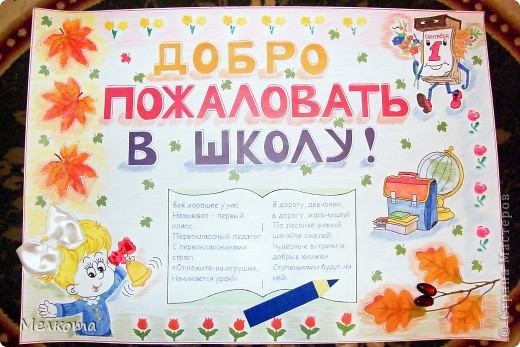 ДОБРО
ПОЖАЛОВАТЬ
В ШКОЛУ!
Сентябрь
1
Всё хорошее у нас
Называют - первый
класс.
Первоклассный педагог
С первоклассниками
строг:
«Отложите-ка игрушки,
Начинается урок!»
В дорогу, девчонки,
в дорогу, мальчишки!
По лесенке знаний
шагайте смелей.
Чудесные встречи и
добрые книжки
Ступеньками будут на
ней.
Мелкота
© Страна Мастеров